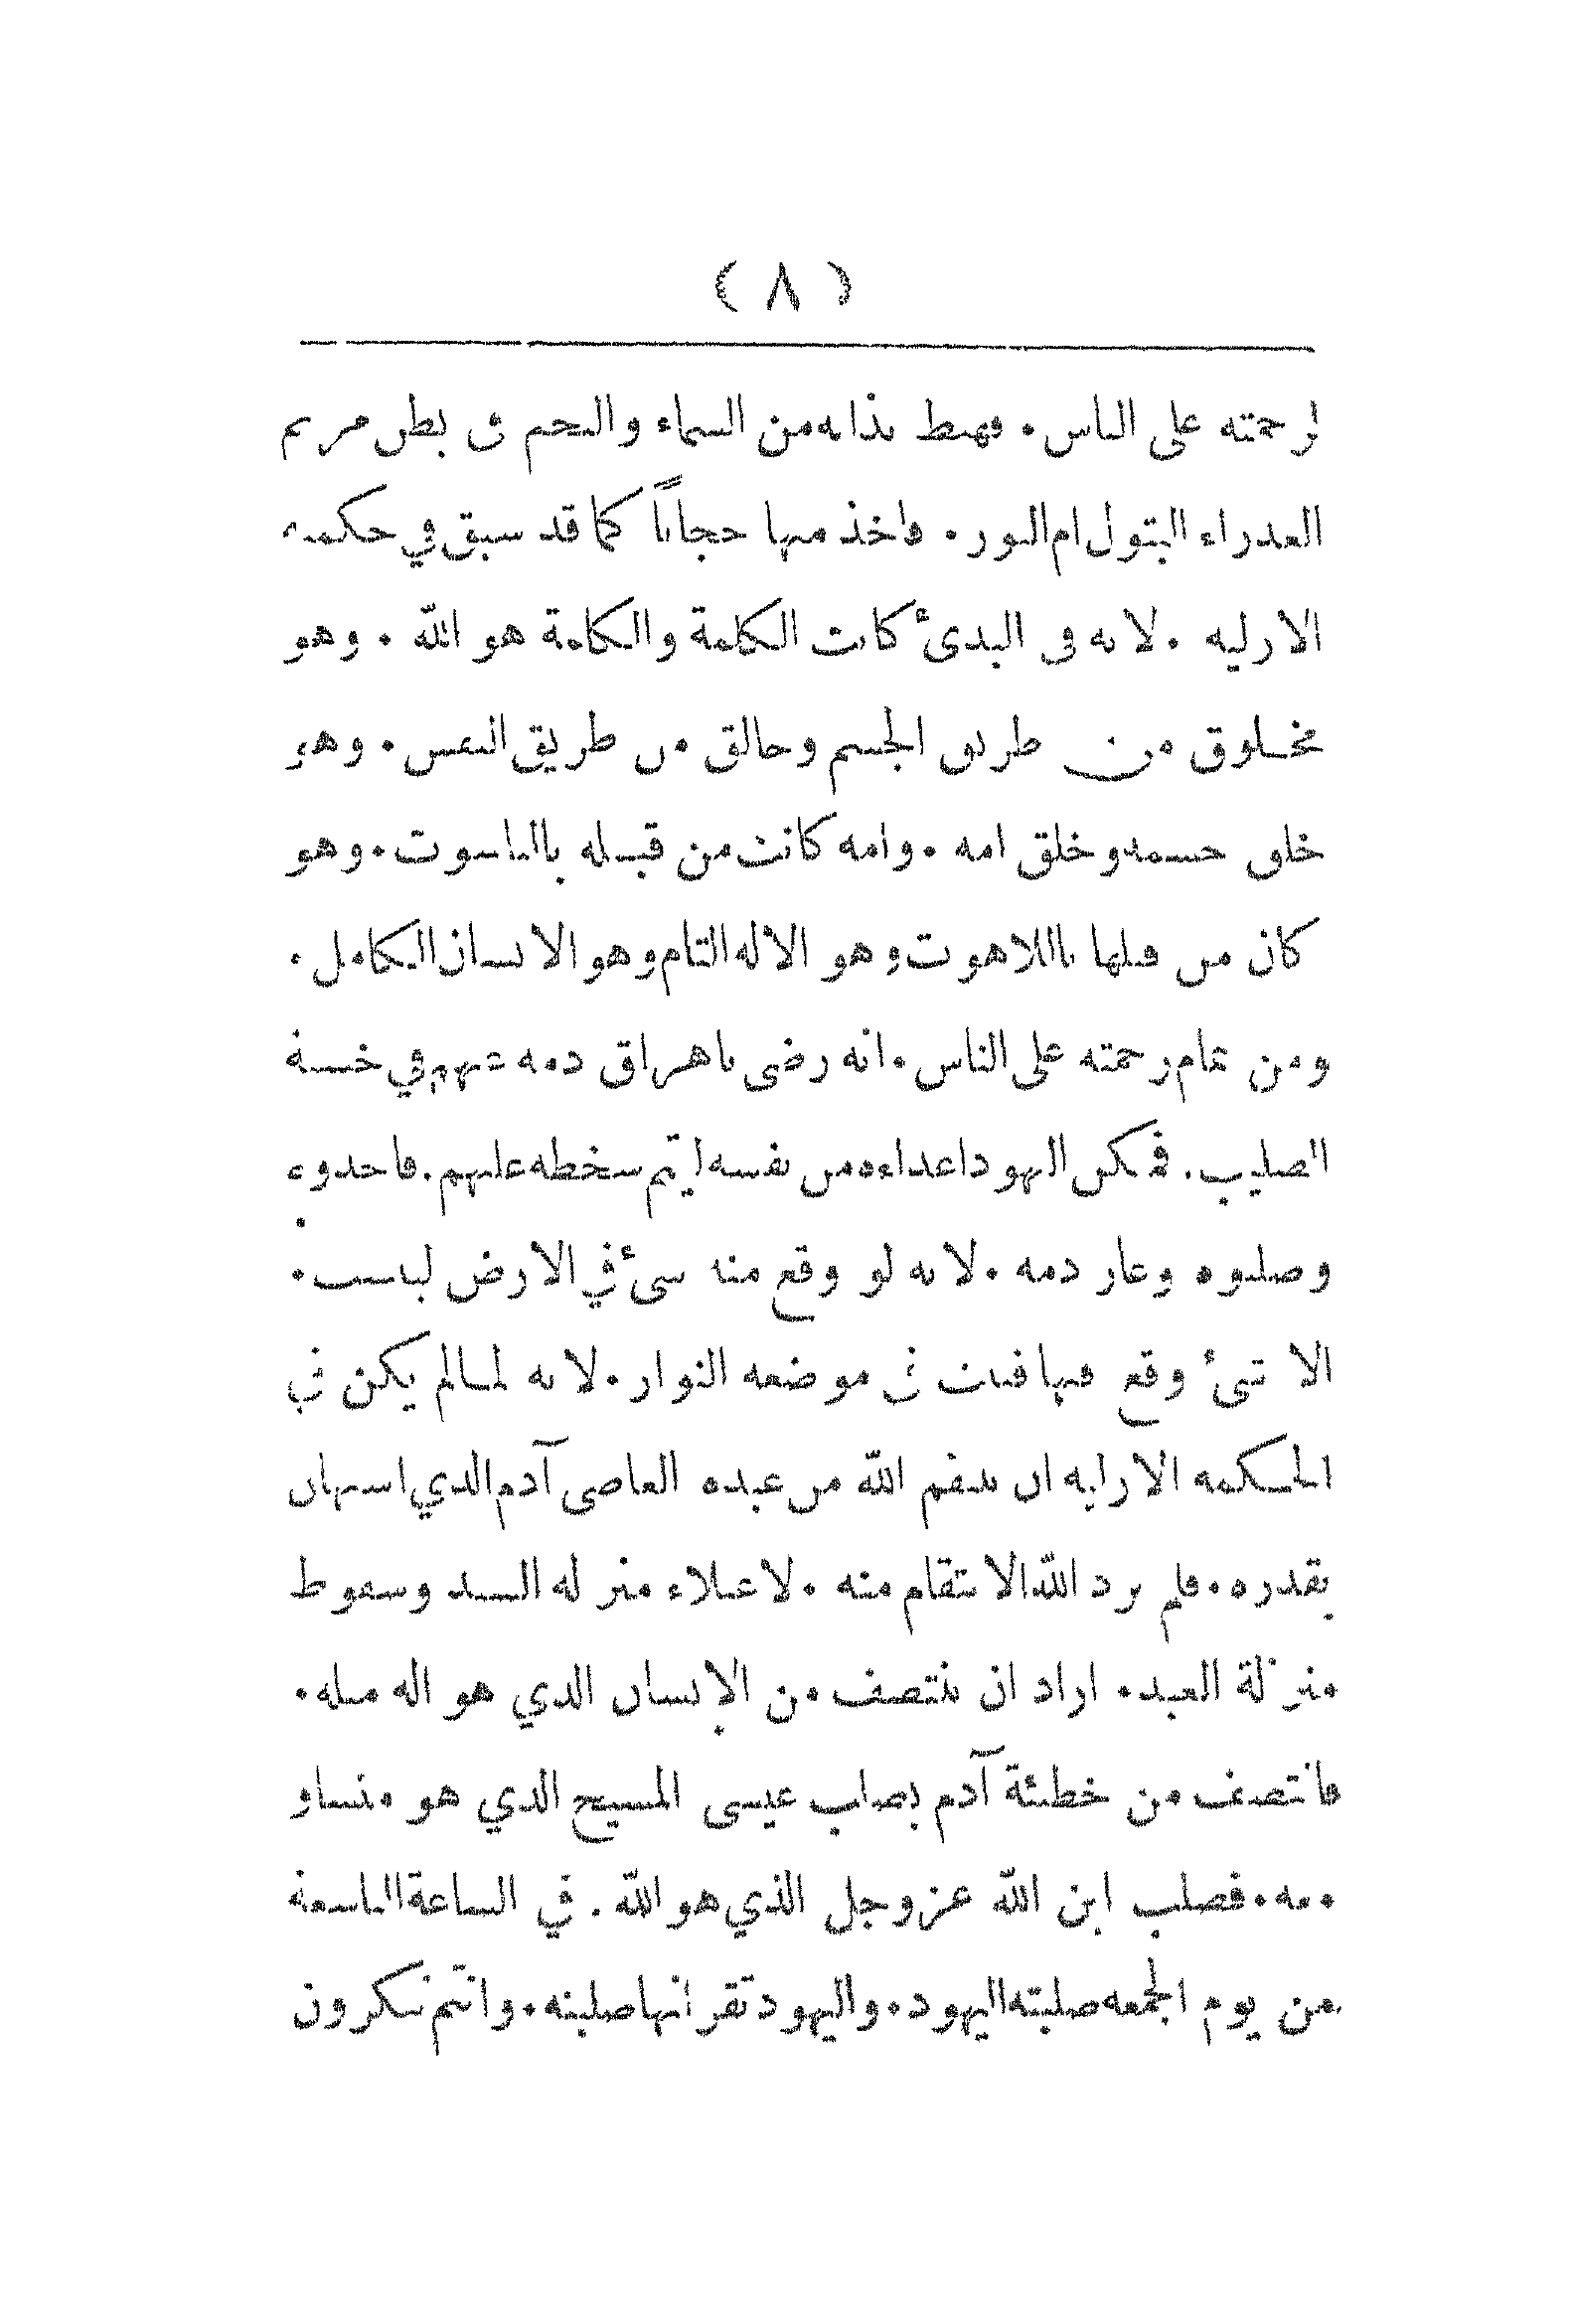 ( ٨ )
لرحمته على الناس . فهبط بذاته من السماء والتحم في بطن مريم
العذراء البتول ام النور . فاخذ منها حجاباً كما قد سبق في حكمته
الازلية . لانه في البدئ كانت الكلمة والكلمة هو الله . وهو
مخلوق من طريق الجسم وخالق من طريق النفس . وهو
خلق جسمه وخلق امه . وامه كانت من قبله بالناسوت . وهو
كان من قبلها باللاهوت وهو الاله التام وهو الانسان الكامل .
ومن تمام رحمته على الناس . انه رضى باهراق دمه عنهم في خشبة
الصليب . فمكن اليهود اعداءه من نفسه ليتم سخطه عليهم . فاخذوه
وصلبوه وغار دمه . لانه لو وقع منه شئ في الارض ليبست .
الا شئ وقع فيها فنبت في موضعه النوار . لانه لما لم يكن في
الحكمه الازليه ان ينتقم الله من عبده العاصى آدم الذي استهان
بقدره . فلم يرد الله الانتقام منه . لاعتلاء منزله السيد وسقوط
منزلة العبد . اراد ان ينتصف من الإنسان الذي هو اله مثله .
فانتصف من خطئة آدم بصلب عيسى المسيح الذي هو متساو
معه . فصلب ابن الله عز وجل الذي هو الله . في الساعة التاسعة
من يوم الجمعه صلبته اليهود . واليهود تقر انها صلبته . وانتم تنكرون